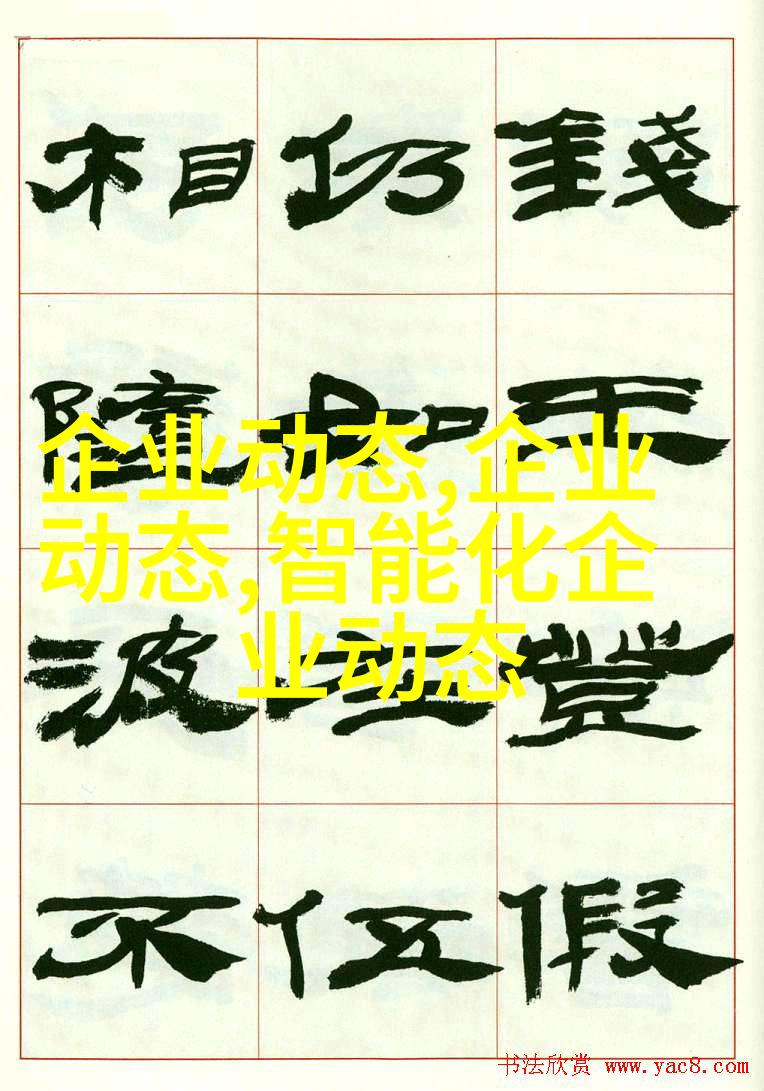 錢
豐
假
仍
加
伍
相
隨
波
不
企业动态,企业
动态,智能化企
业动态
书法欣赏 www.yac8.com